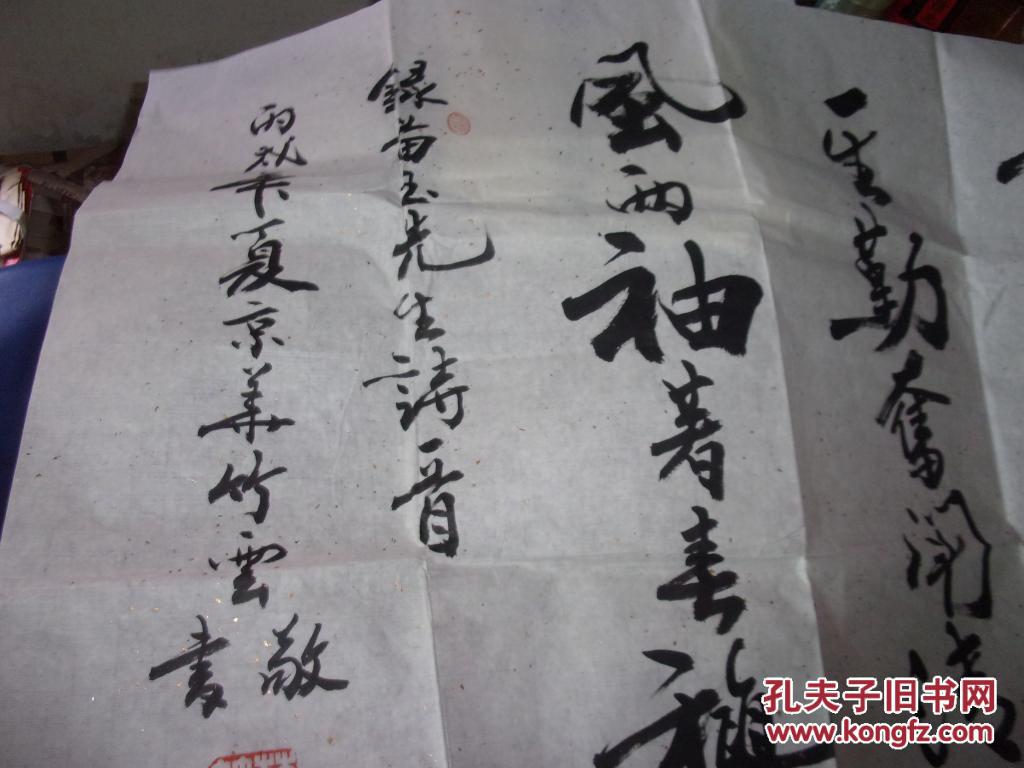 一生勤奮闯
風两袖著春
錄苗玉先生詩一首
夏京華竹雲敬
書
孔夫子旧书网
www.kongfz.com